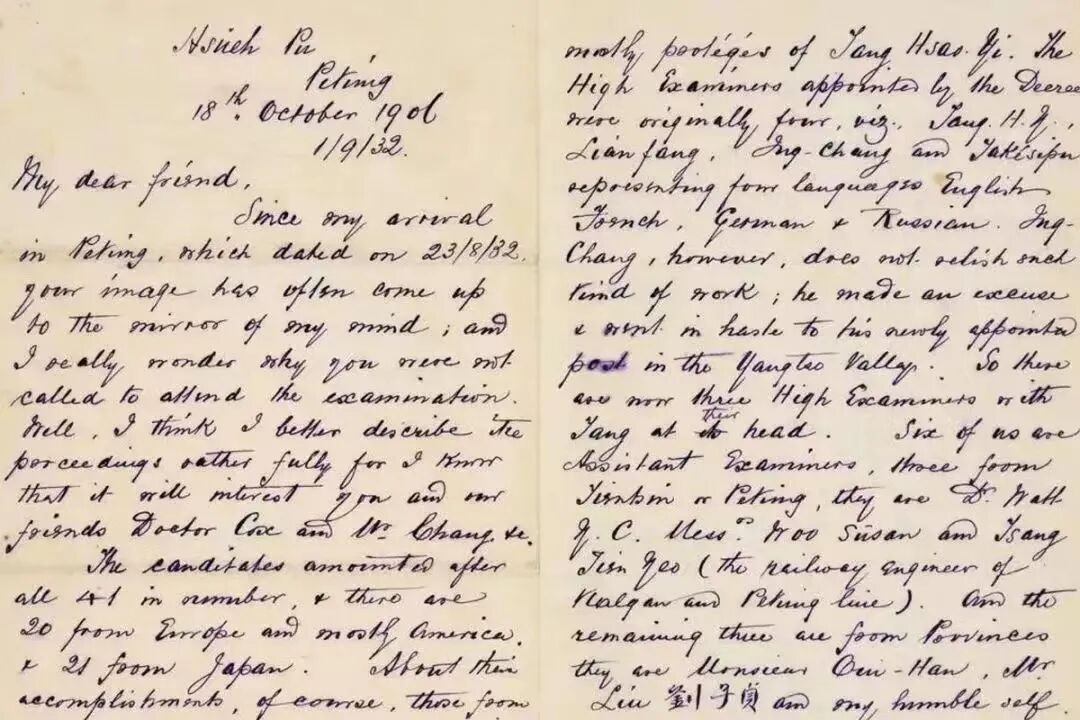 Hsueh Pu
Peking
18th. October 1906
1/9/32.
My dear friend,
Since my arrival
in Peking, which dated on 23/8/32,
your image has often come up
to the mirror of my mind; and
I really wonder why you were not
called to attend the examination.
Well, I think I better describe the
porceedings rather fully for I know
that it will interest you and our
friends Doctor Cox and Mr. Chang &c.
The canditates amounted after
all 41 in number, & there are
20 from Europe and mostly America,
& 21 from Japan. About their
accomplishments, of course, those from
mostly protégés of Tang Hsao-Yi. The
High Examiners appointed by the Decree
were originally four, viz., Tang. H.Y.,
Lianfang, Ing-Chang and Takisipu
representing four languages English
French, German & Russian. Ing-
Chang, however, does not relish such
kind of work; he made an excuse
& went in haste to his newly appointed
post in the Yangtso Valley. So there
are now three High Examiners with
Tang at their head. Six of us are
Assistant Examiners, three from
Tientsin or Peking, they are Dr. Watt
Y. C. Messrs Woo Susan and Tsang
Tien Yeo (the railway engineer of
Kalgan and Peking line). And the
remaining three are from Provinces
they are Monsieur Oui-Han, Mr.
Liu 劉子貞 and my humble self.